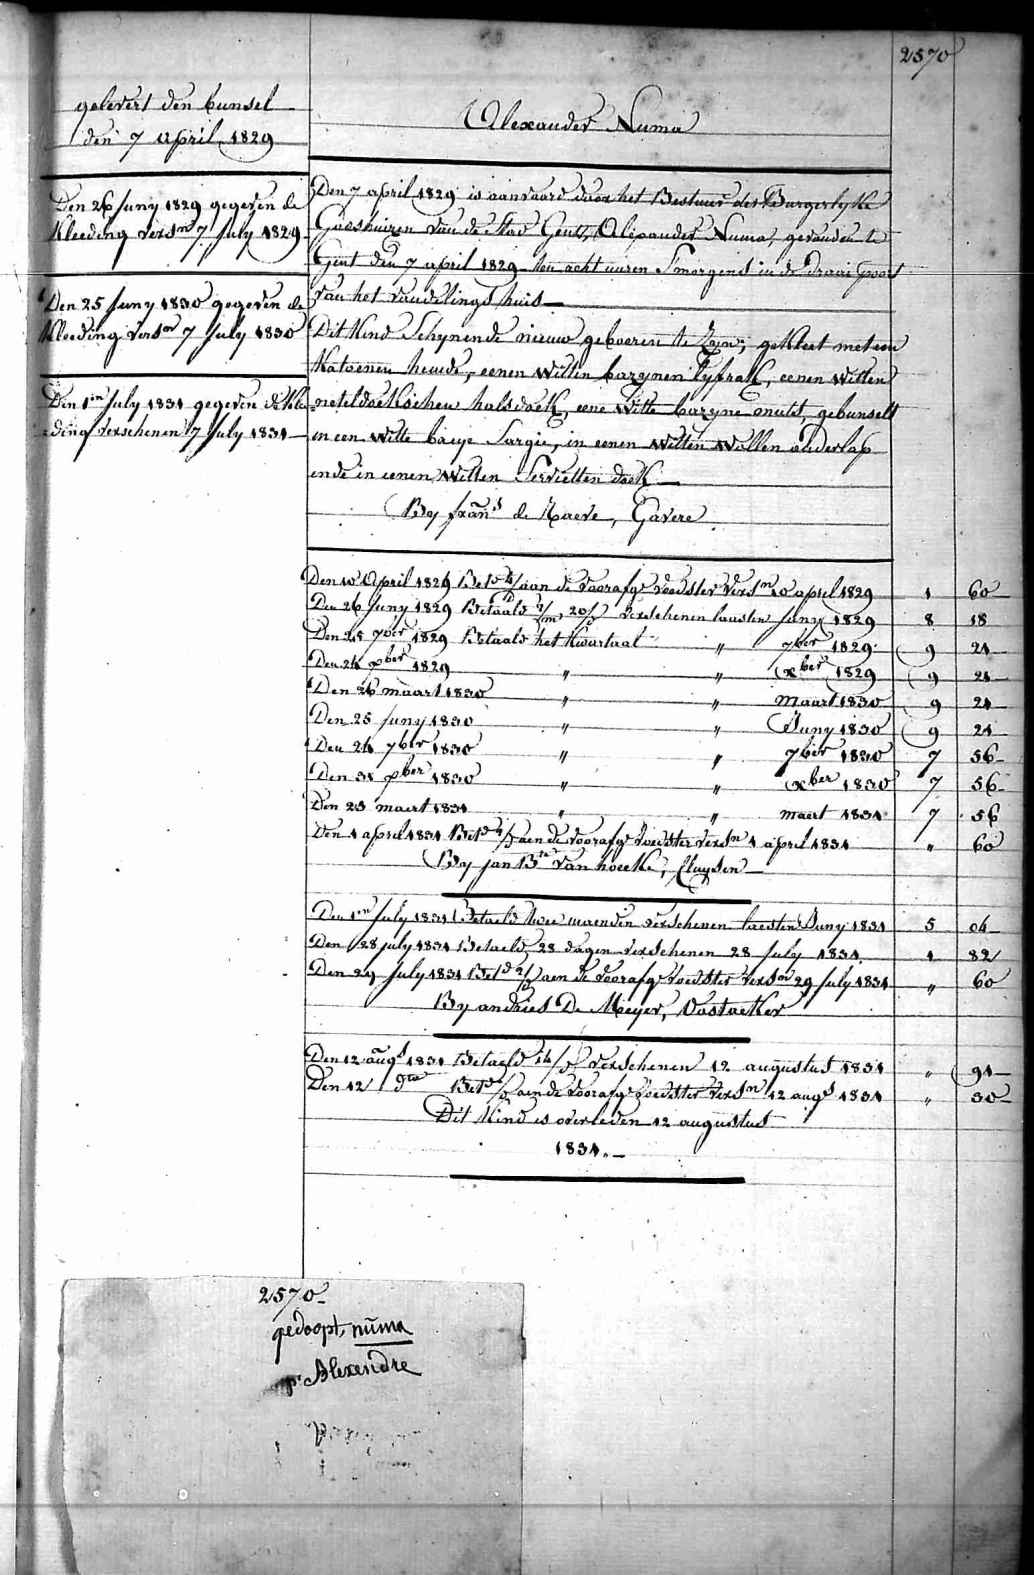 2570
gelevert den bunsel
den 7 april 1829
Alexander Numa
Den 26 Juny 1829 gegeven de
Kleeding versn 7 July 1829
Den 25 Juny 1830 gegeven de
Kleeding versn 7 July 1830
Den 1en July 1831 gegeven de Klee
ding verschenen 7 July 1831
Den 7 april 1829 is aanvaard door het Bestuur der Burgerlyke
Godshuizen van de Stad Gent, Alexander Numa, gevonden te
Gent den 7 april 1829 ten acht uuren Smorgens in de draai
van het vondelings huis
Dit Kind Schynende nieuw geboeren te Zyn, gekleet met een
Katoenen hemde, eenen witten bazynen lyfrok, eenen witten
neteldoekschen halsdoek, eene witte bazyne muts, gebunselt
in een witte baeye Sargie, in eenen witten wollen olderlap
ende in eenen witten Servietten doek
By frans de Raeve, Gavere
Den 10 April 1829 Betd aan de voorafge voedster versn 10 april 1829 1 60
Den 26 Juny 1829 Betaald 2/m 20/D verschenen laasten Juny 1829 8 18
Den 25 7ber 1829 Betaald het Kwartaal " 7ber 1829 9 24
Den 24 xber 1829 " " xber 1829 9 24
Den 26 maart 1830 " " Maart 1830 9 24
Den 25 Juny 1830 " " Juny 1830 9 24
Den 24 7ber 1830 " " 7ber 1830 7 56
Den 31 xber 1830 " " xber 1830 7 56
Den 23 maert 1831 " " maert 1831 7 56
Den 1 april 1831 Betd aen de voorafge voedster versn 1 april 1831 " 60
By jan Bte van hoecke, Cluysen
Den 1en July 1831 Betaeld twee maenden verschenen laesten Juny 1831 5 04
Den 28 july 1831 Betaeld 28 dagen verschenen 28 July 1831 1 82
Den 29 July 1831 Betd aen de voorafge voedster versn 29 July 1831 " 60
By andries De Meyer, Oostacker
Den 12 augs 1831 Betaeld 14/D verschenen 12 augustus 1831 " 91
Den 12 dto Betd aen de voorafge voedster versn 12 augs 1831 " 30
Dit Kind is overleden 12 augustus
1831.
2570
gedoopt, numa
p. Alexendre